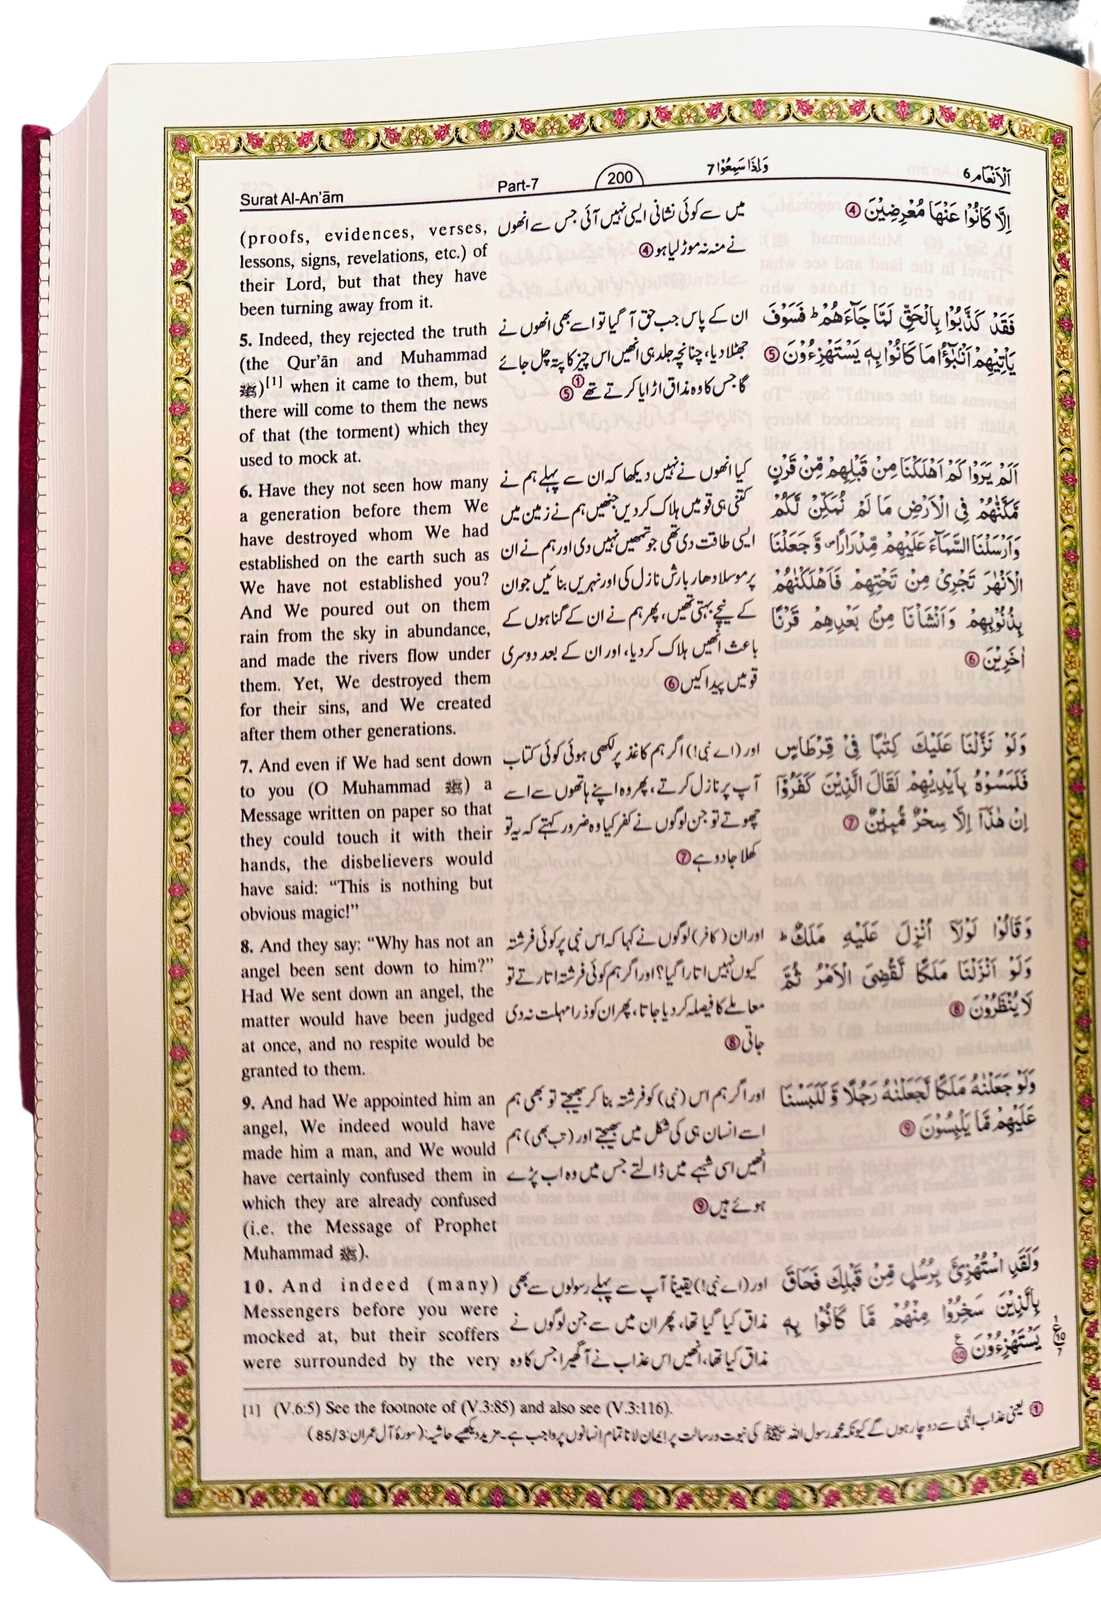 Surat Al-An'ām
Part-7
200
وَاِذَا سَمِعُوْا 7
اَلْاَنْعَام 6
(proofs, evidences, verses,
lessons, signs, revelations, etc.) of
their Lord, but that they have
been turning away from it.
5. Indeed, they rejected the truth
(the Qur'ān and Muhammad
ﷺ)[1] when it came to them, but
there will come to them the news
of that (the torment) which they
used to mock at.
6. Have they not seen how many
a generation before them We
have destroyed whom We had
established on the earth such as
We have not established you?
And We poured out on them
rain from the sky in abundance,
and made the rivers flow under
them. Yet, We destroyed them
for their sins, and We created
after them other generations.
7. And even if We had sent down
to you (O Muhammad ﷺ) a
Message written on paper so that
they could touch it with their
hands, the disbelievers would
have said: “This is nothing but
obvious magic!”
8. And they say: “Why has not an
angel been sent down to him?”
Had We sent down an angel, the
matter would have been judged
at once, and no respite would be
granted to them.
9. And had We appointed him an
angel, We indeed would have
made him a man, and We would
have certainly confused them in
which they are already confused
(i.e. the Message of Prophet
Muhammad ﷺ).
10. And indeed (many)
Messengers before you were
mocked at, but their scoffers
were surrounded by the very
میں سے کوئی نشانی ایسی نہیں آئی جس سے انھوں
نے منہ نہ موڑ لیا ہو ④
ان کے پاس جب حق آ گیا تو اسے بھی انھوں نے
جھٹلا دیا، چنانچہ جلد ہی انھیں اس چیز کا پتہ چل جائے
گا جس کا وہ مذاق اڑایا کرتے تھے ① ⑤
کیا انھوں نے نہیں دیکھا کہ ان سے پہلے ہم نے
کتنی ہی قومیں ہلاک کر دیں جنھیں ہم نے زمین میں
ایسی طاقت دی تھی جو تمھیں نہیں دی اور ہم نے ان
پر موسلا دھار بارش نازل کی اور نہریں بنائیں جو ان
کے نیچے بہتی تھیں، پھر ہم نے ان کے گناہوں کے
باعث انھیں ہلاک کر دیا، اور ان کے بعد دوسری
قومیں پیدا کیں ⑥
اور (اے نبی!) اگر ہم کاغذ پر لکھی ہوئی کوئی کتاب
آپ پر نازل کرتے، پھر وہ اپنے ہاتھوں سے اسے
چھوتے تو جن لوگوں نے کفر کیا وہ ضرور کہتے کہ یہ تو
کھلا جادو ہے ⑦
اور ان (کافر) لوگوں نے کہا کہ اس نبی پر کوئی فرشتہ
کیوں نہیں اتارا گیا؟ اور اگر ہم کوئی فرشتہ اتارتے تو
معاملے کا فیصلہ کر دیا جاتا، پھر ان کو ذرا مہلت نہ دی
جاتی ⑧
اور اگر ہم اس (نبی) کو فرشتہ بنا کر بھیجتے تو بھی ہم
اسے انسان ہی کی شکل میں بھیجتے اور (تب بھی) ہم
انھیں اسی شبہے میں ڈالتے جس میں وہ اب پڑے
ہوئے ہیں ⑨
اور (اے نبی!) یقیناً آپ سے پہلے رسولوں سے بھی
مذاق کیا گیا تھا، پھر ان میں سے جن لوگوں نے
مذاق کیا تھا، انھیں اس عذاب نے آ گھیرا جس کا وہ
اِلَّا كَانُوْا عَنْهَا مُعْرِضِيْنَ ④
فَقَدْ كَذَّبُوْا بِالْحَقِّ لَمَّا جَآءَهُمْ ؕ فَسَوْفَ
يَاْتِيْهِمْ اَنْۢبٰٓؤُا مَا كَانُوْا بِهٖ يَسْتَهْزِءُوْنَ ⑤
اَلَمْ يَرَوْا كَمْ اَهْلَكْنَا مِنْ قَبْلِهِمْ مِّنْ قَرْنٍ
مَّكَّنّٰهُمْ فِى الْاَرْضِ مَا لَمْ نُمَكِّنْ لَّكُمْ
وَاَرْسَلْنَا السَّمَآءَ عَلَيْهِمْ مِّدْرَارًا۪ وَّجَعَلْنَا
الْاَنْهٰرَ تَجْرِىْ مِنْ تَحْتِهِمْ فَاَهْلَكْنٰهُمْ
بِذُنُوْبِهِمْ وَاَنْشَاْنَا مِنْۢ بَعْدِهِمْ قَرْنًا
اٰخَرِيْنَ ⑥
وَلَوْ نَزَّلْنَا عَلَيْكَ كِتٰبًا فِىْ قِرْطَاسٍ
فَلَمَسُوْهُ بِاَيْدِيْهِمْ لَقَالَ الَّذِيْنَ كَفَرُوْٓا
اِنْ هٰذَآ اِلَّا سِحْرٌ مُّبِيْنٌ ⑦
وَقَالُوْا لَوْلَآ اُنْزِلَ عَلَيْهِ مَلَكٌ ؕ
وَلَوْ اَنْزَلْنَا مَلَكًا لَّقُضِىَ الْاَمْرُ ثُمَّ
لَا يُنْظَرُوْنَ ⑧
وَلَوْ جَعَلْنٰهُ مَلَكًا لَّجَعَلْنٰهُ رَجُلًا وَّلَلَبَسْنَا
عَلَيْهِمْ مَّا يَلْبِسُوْنَ ⑨
وَلَقَدِ اسْتُهْزِئَ بِرُسُلٍ مِّنْ قَبْلِكَ فَحَاقَ
بِالَّذِيْنَ سَخِرُوْا مِنْهُمْ مَّا كَانُوْا بِهٖ
يَسْتَهْزِءُوْنَ ⑩
[1] (V.6:5) See the footnote of (V.3:85) and also see (V.3:116).
① یعنی عذاب الٰہی سے دوچار ہوں گے کیونکہ محمد رسول اللہ ﷺ کی نبوت و رسالت پر ایمان لانا تمام انسانوں پر واجب ہے۔ مزید دیکھیے حاشیہ: (سورۂ آل عمران: 85/3)